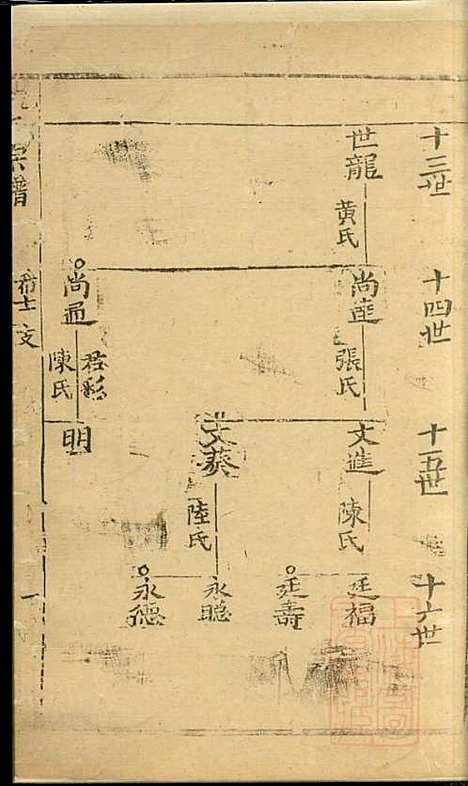 十三世
世龍
黄氏
十四世
尚進
張氏
尚通
君彩
陳氏
十五世
文進
陳氏
文葵
陸氏
明
十六世
廷福
廷壽
永聰
永德
宗譜
希士支
一